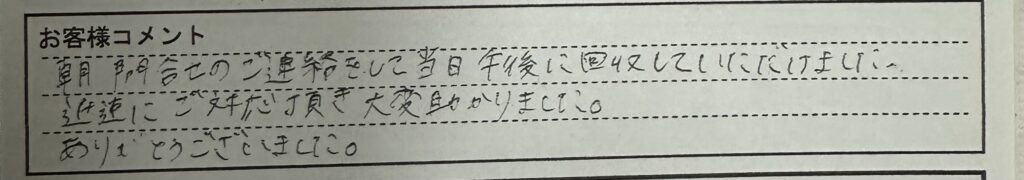 お客様コメント
朝 問合せのご連絡をして当日午後に回収していただけました。
迅速にご対応頂き大変助かりました。
ありがとうございました。